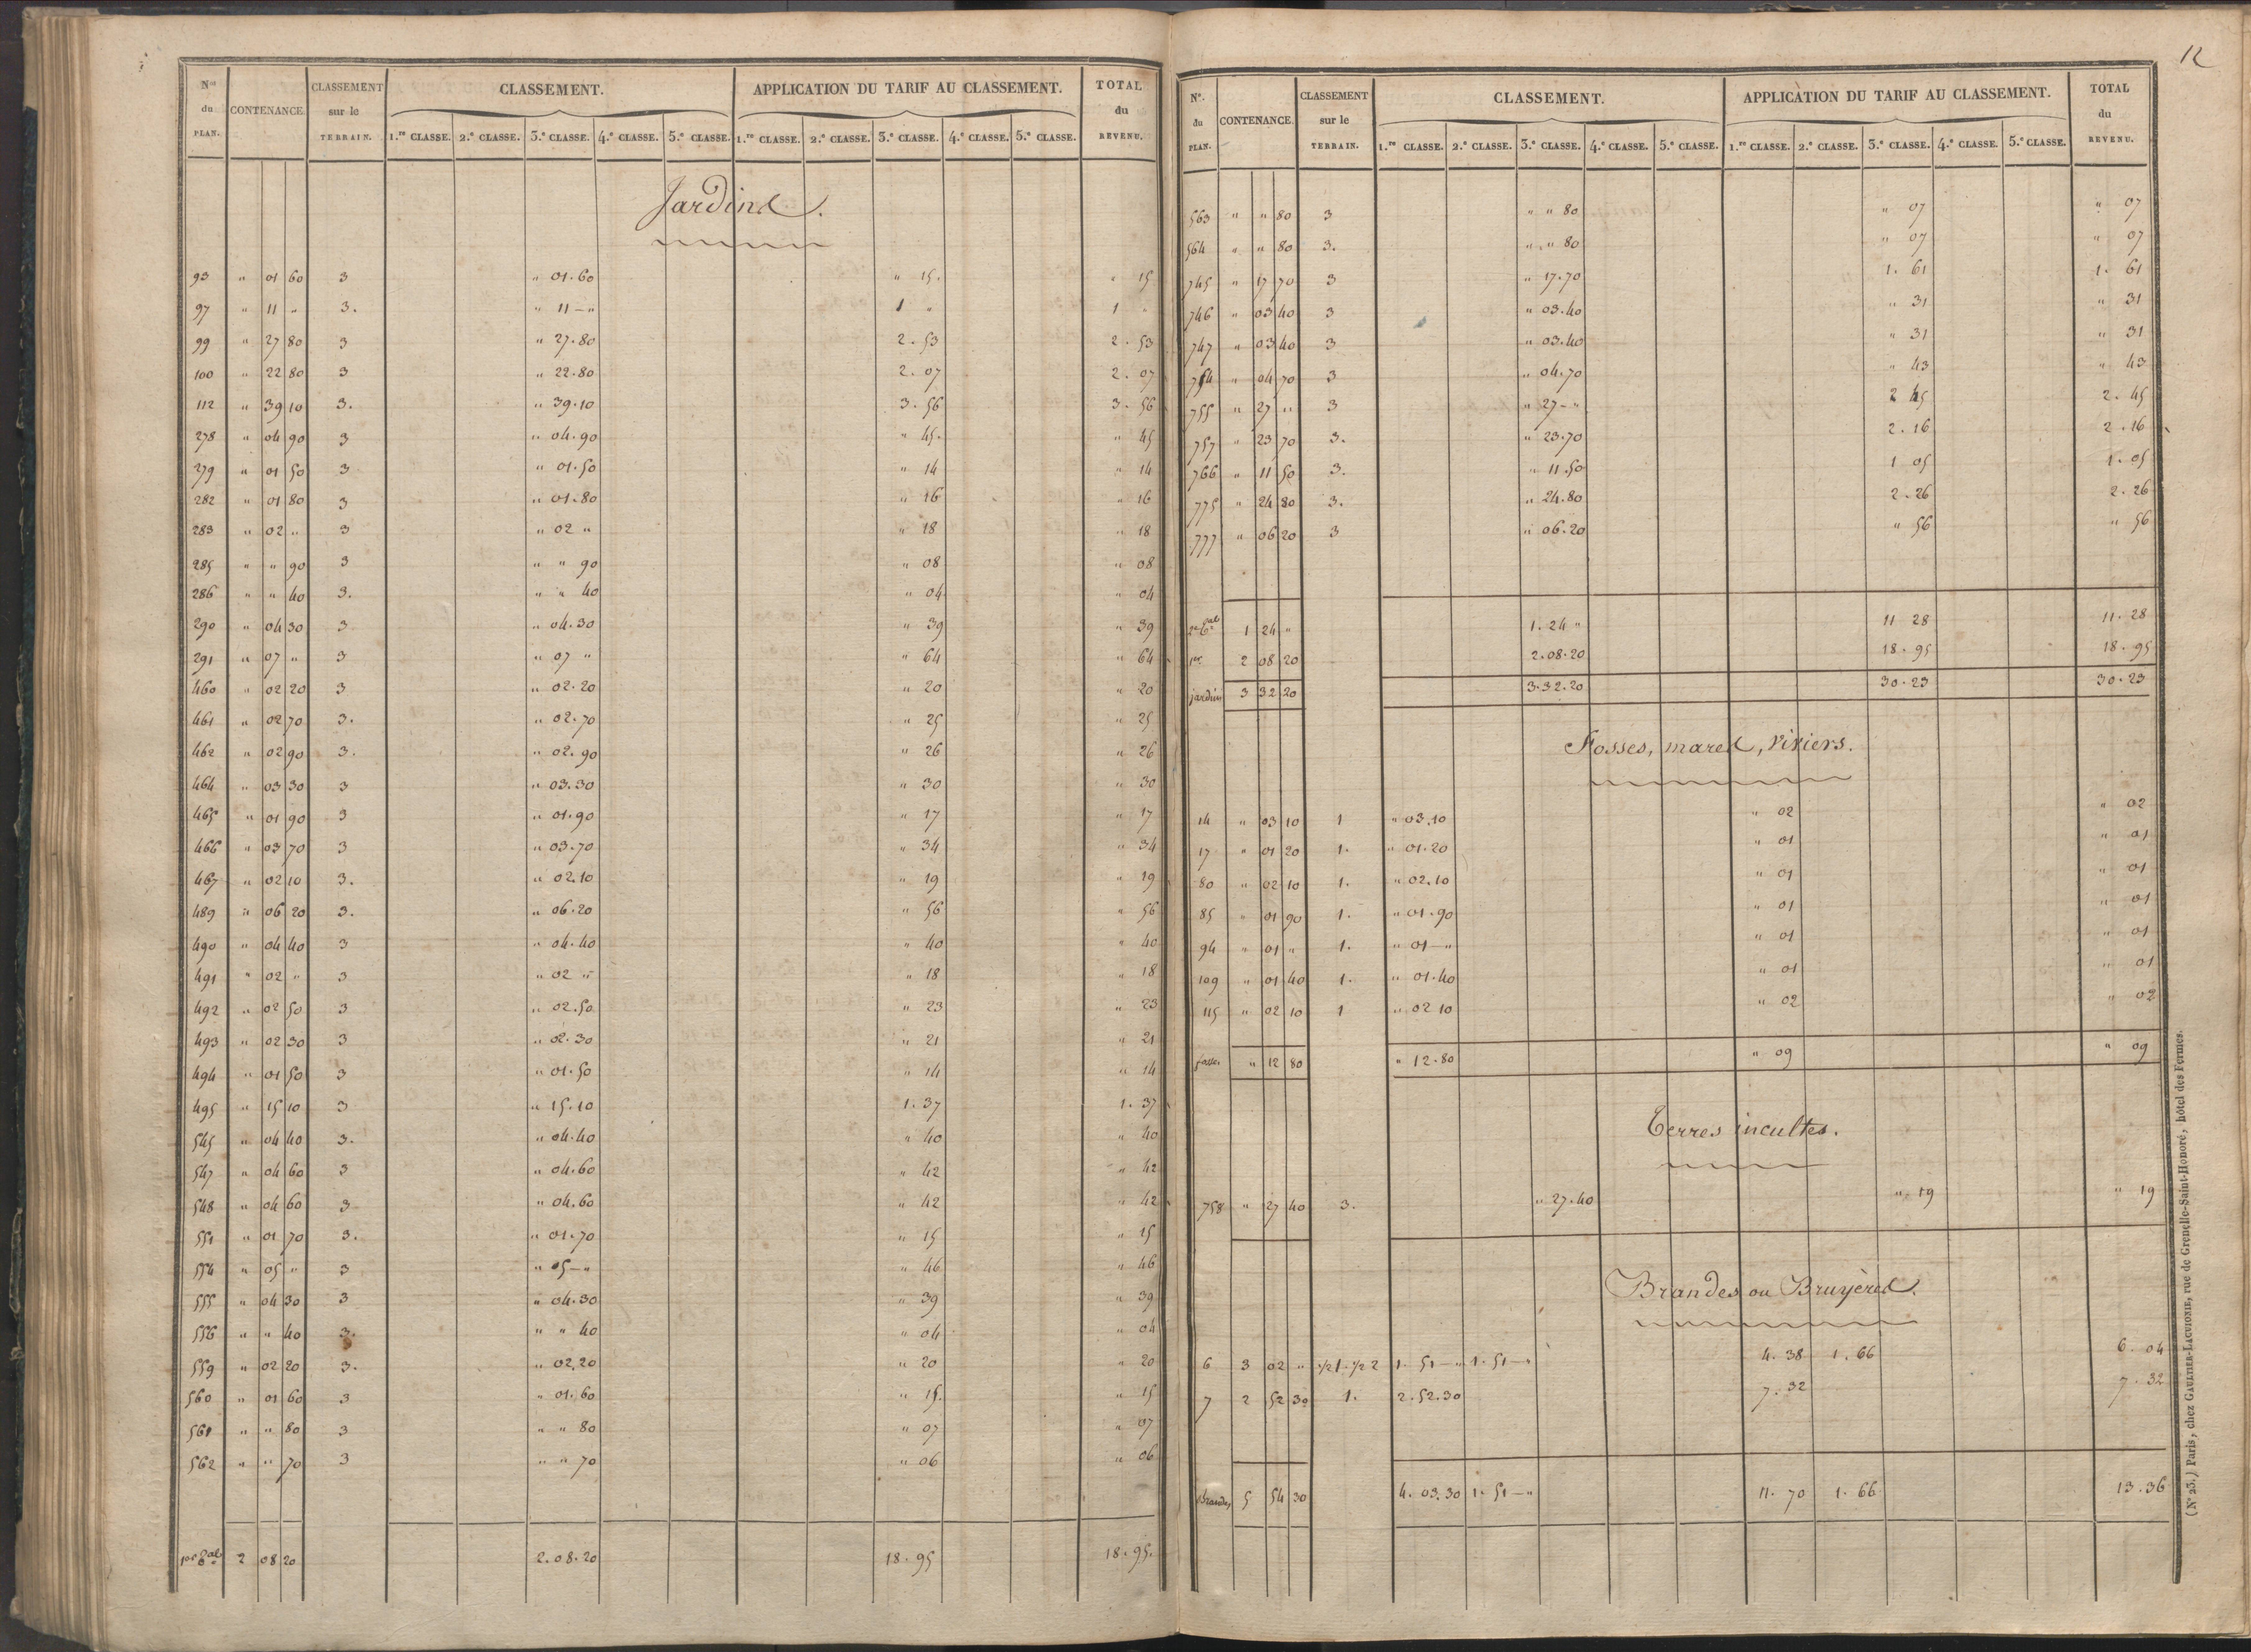 Nos du PLAN. CONTENANCE. CLASSEMENT sur le TERRAIN. CLASSEMENT. APPLICATION DU TARIF AU CLASSEMENT. TOTAL du REVENU.
1.re CLASSE. 2.e CLASSE. 3.e CLASSE. 4.e CLASSE. 5.e CLASSE. 1.re CLASSE. 2.e CLASSE. 3.e CLASSE. 4.e CLASSE. 5.e CLASSE.
Jardins.
93 " 01 60 3 " 01.60 " 15. " 15
97 " 11 " 3. " 11 – " 1 " 1 "
99 " 27 80 3 " 27.80 2.53 2.53
100 " 22 80 3 " 22.80 2.07 2.07
112 " 39 10 3. " 39.10 3.56 3.56
278 " 04 90 3 " 04.90 " 45. " 45
279 " 01 50 3 " 01.50 " 14 " 14
282 " 01 80 3 " 01.80 " 16 " 16
283 " 02 " 3 " 02 " " 18 " 18
285 " " 90 3 " " 90 " 08 " 08
286 " " 40 3. " " 40 " 04 " 04
290 " 04 30 3 " 04.30 " 39 " 39
291 " 07 " 3 " 07 " " 64 " 64
460 " 02 20 3 " 02.20 " 20 " 20
461 " 02 70 3. " 02.70 " 25 " 25
462 " 02 90 3. " 02.90 " 26 " 26
464 " 03 30 3 " 03.30 " 30 " 30
465 " 01 90 3 " 01.90 " 17 " 17
466 " 03 70 3 " 03.70 " 34 " 34
467 " 02 10 3. " 02.10 " 19 " 19
489 " 06 20 3. " 06.20 " 56 " 56
490 " 04 40 3 " 04.40 " 40 " 40
491 " 02 " 3 " 02 " " 18 " 18
492 " 02 50 3 " 02.50 " 23 " 23
493 " 02 30 3 " 02.30 " 21 " 21
494 " 01 50 3 " 01.50 " 14 " 14
495 " 15 10 3 " 15.10 1.37 1.37
545 " 04 40 3. " 04.40 " 40 " 40
547 " 04 60 3 " 04.60 " 42 " 42
548 " 04 60 3 " 04.60 " 42 " 42
551 " 01 70 3. " 01.70 " 15 " 15
554 " 05 " 3 " 05 – " " 46 " 46
555 " 04 30 3 " 04.30 " 39 " 39
556 " " 40 3. " " 40 " 04 " 04
559 " 02 20 3. " 02.20 " 20 " 20
560 " 01 60 3 " 01.60 " 15. " 15
561 " " 80 3 " " 80 " 07 " 07
562 " " 70 3 " " 70 " 06 " 06
1er tal 2 08 20 2.08.20 18.95 18.95.
12
No. du PLAN. CONTENANCE. CLASSEMENT sur le TERRAIN. CLASSEMENT. APPLICATION DU TARIF AU CLASSEMENT. TOTAL du REVENU.
1.re CLASSE. 2.e CLASSE. 3.e CLASSE. 4.e CLASSE. 5.e CLASSE. 1.re CLASSE. 2.e CLASSE. 3.e CLASSE. 4.e CLASSE. 5.e CLASSE.
563 " " 80 3 " " 80 " 07 " 07
564 " " 80 3. " " 80 " 07 " 07
745 " 17 70 3 " 17.70 1.61 1.61
746 " 03 40 3 " 03.40 " 31 " 31
747 " 03 40 3 " 03.40 " 31 " 31
754 " 04 70 3 " 04.70 " 43 " 43
755 " 27 " 3 " 27 – " 2 45 2.45
757 " 23 70 3. " 23.70 2.16 2.16
766 " 11 50 3. " 11.50 1 05 1.05
775 " 24 80 3. " 24.80 2.26 2.26
777 " 06 20 3 " 06.20 " 56 " 56
2e tal 1 24 " 1.24 " 11 28 11.28
1er 2 08 20 2.08.20 18.95 18.95
jardins 3 32 20 3.32.20 30.23 30.23
Fosses, mares, viviers.
14 " 03 10 1 " 03.10 " 02 " 02
17 " 01 20 1. " 01.20 " 01 " 01
80 " 02 10 1. " 02.10 " 01 " 01
85 " 01 90 1. " 01.90 " 01 " 01
94 " 01 " 1. " 01 – " " 01 " 01
109 " 01 40 1. " 01.40 " 01 " 01
115 " 02 10 1 " 02 10 " 02 " 02
fosses " 12 80 " 12.80 " 09 " 09
Terres incultes.
758 " 27 40 3. " 27.40 " 19 " 19
Brandes ou Bruyères.
6 3 02 " 1/2 1. 1/2 2 1.51 – " 1.51 – " 4.38 1.66 6.04
7 2 52 30 1. 2.52.30 7.32 7.32
Brandes 5 54 30 4.03.30 1.51 – " 11.70 1.66 13.36
(No 23.) Paris, chez GAULTIER-LAGUIONIE, rue de Grenelle-Saint-Honoré, hôtel des Fermes.